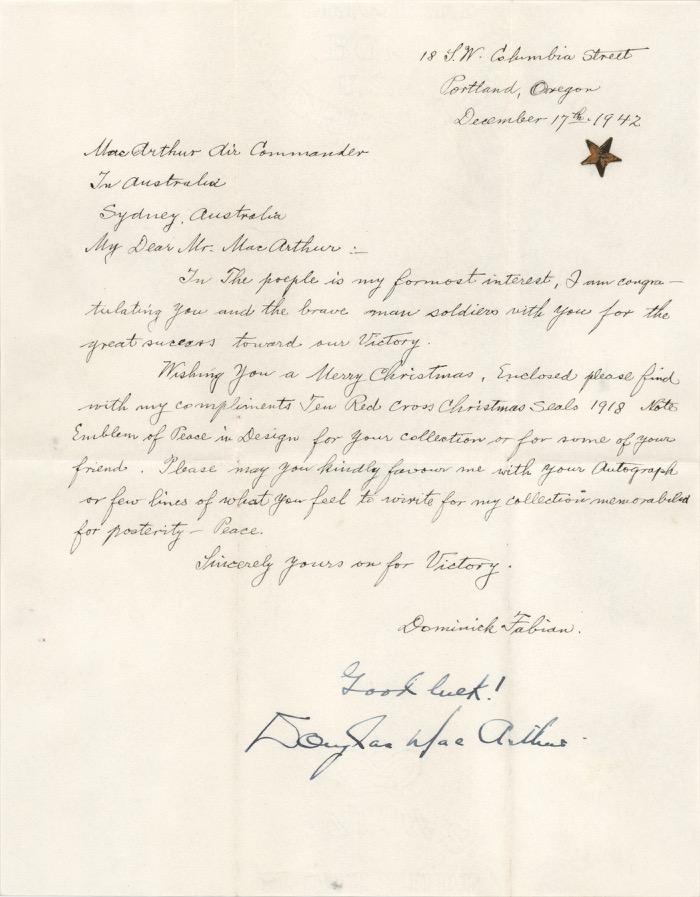 18 S.W. Columbia Street
Portland, Oregon
December 17th. 1942
MacArthur Air Commander
In Australia
Sydney, Australia
My Dear Mr. MacArthur :-
In The poeple is my formost interest, I am congra-
tulating You and the brave man soldiers with You for the
great success toward our Victory.
Wishing You a Merry Christmas. Enclosed please find
with my compliments Ten Red Cross Christmas Seals 1918 Note
Emblem of Peace in Design for Your collection or for some of your
friend. Please may you kindly favour me with your Autograph
or few lines of what You feel to write for my collection memorabiled
for posterity - Peace.
Sincerely yours on for Victory.
Dominick Fabian.
Good luck!
Douglas MacArthur.